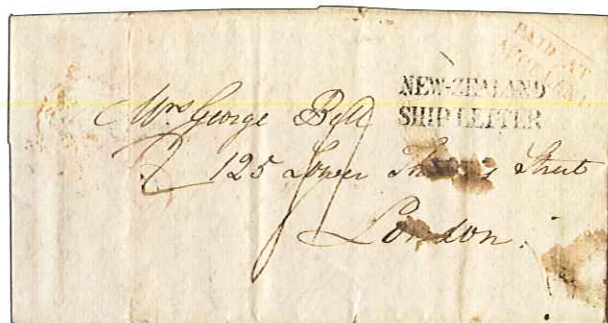 PAID AT
AUCKLAND
NEW-ZEALAND
SHIP LETTER
Mrs George Bell
125 Lower Thames Street
London.